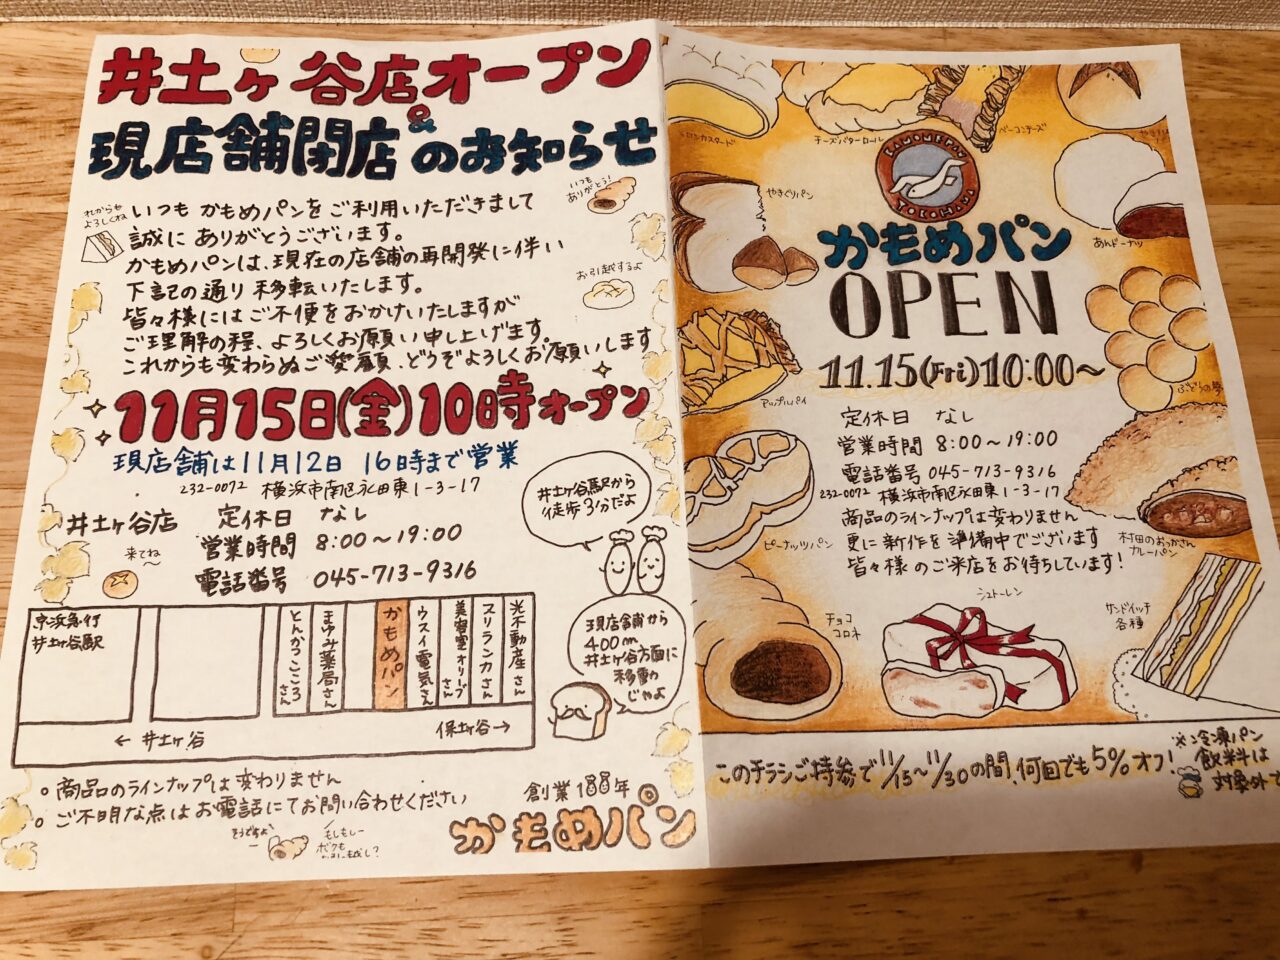 井土ヶ谷店オープン
&
現店舗閉店のお知らせ
いつも
ありがとう!
これからも
よろしくね
いつも かもめパンをご利用いただきまして
誠に ありがとうございます。
かもめパンは、現在の店舗の再開発に伴い
下記の通り 移転いたします。
皆々様にはご不便をおかけいたしますが
ご理解の程、よろしくお願い申し上げます。
これからも変わらぬご愛顧、どうぞよろしくお願いします
お引越するよ
11月15日(金)10時オープン
現店舗は11月12日 16時まで営業
232-0072 横浜市南区永田東1-3-17
井土ヶ谷店 定休日 なし
営業時間 8:00~19:00
電話番号 045-713-9316
来てね~
井土ヶ谷駅から
徒歩3分だよ
京浜急行
井土ヶ谷駅
とんかつこころさん
まゆみ薬局さん
かもめパン
ウスイ電気さん
美容室オリーブさん
スリランカさん
光不動産さん
← 井土ヶ谷
保土ヶ谷→
現店舗から
400m
井土ヶ谷方面に
移動
じゃよ
。商品のラインナップは変わりません
。ご不明な点はお電話にてお問い合わせください
そうですよー
もしもしー
ボクも
創業100年
かもめパン
チーズバターロール
ベーコンチーズ
KAMOME PAN
YOKOHAMA
やきぐりパン
あんドーナツ
かもめパン
OPEN
11.15(Fri)10:00~
アップルパイ
定休日 なし
営業時間 8:00~19:00
電話番号 045-713-9316
232-0072 横浜市南区永田東1-3-17
商品のラインナップは変わりません
更に新作を準備中でございます
皆々様のご来店をお待ちしています!
ピーナッツパン
村田のおっかさん
カレーパン
チョコ
コロネ
シュトーレン
サンドイッチ
各種
このチラシご持参で11/15~11/30の間、何回でも5%オフ!
※冷凍パン
飲料は
対象外で